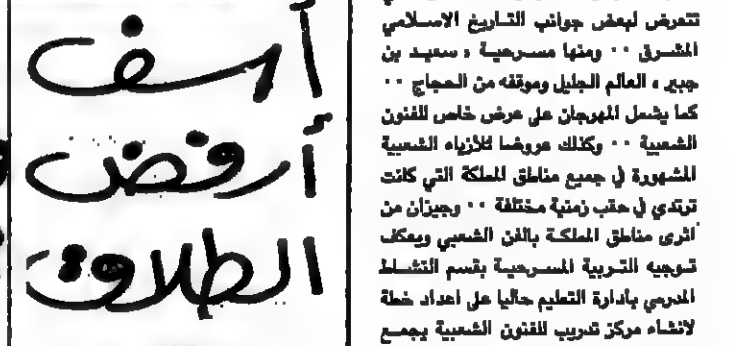 تتعرض لبعض جوانب التاريخ الاسلامي
المشرق ٠٠ ومنها مسرحية « سعيد بن
جبير » العالم الجليل وموقفه من الحجاج ٠٠
كما يشمل المهرجان على عرض خاص للفنون
الشعبية ٠٠ وكذلك عروضا للأزياء الشعبية
المشهورة في جميع مناطق المملكة التي كانت
ترتدي في حقب زمنية مختلفة ٠٠ وجيزان من
اثرى مناطق المملكة بالفن الشعبي ويعكف
توجيه التربية المسرحية بقسم النشاط
المدرسي بأدارة التعليم حاليا على اعداد خطة
لانشاء مركز تدريب للفنون الشعبية يجمع
أسف
أرفض
الطلاق